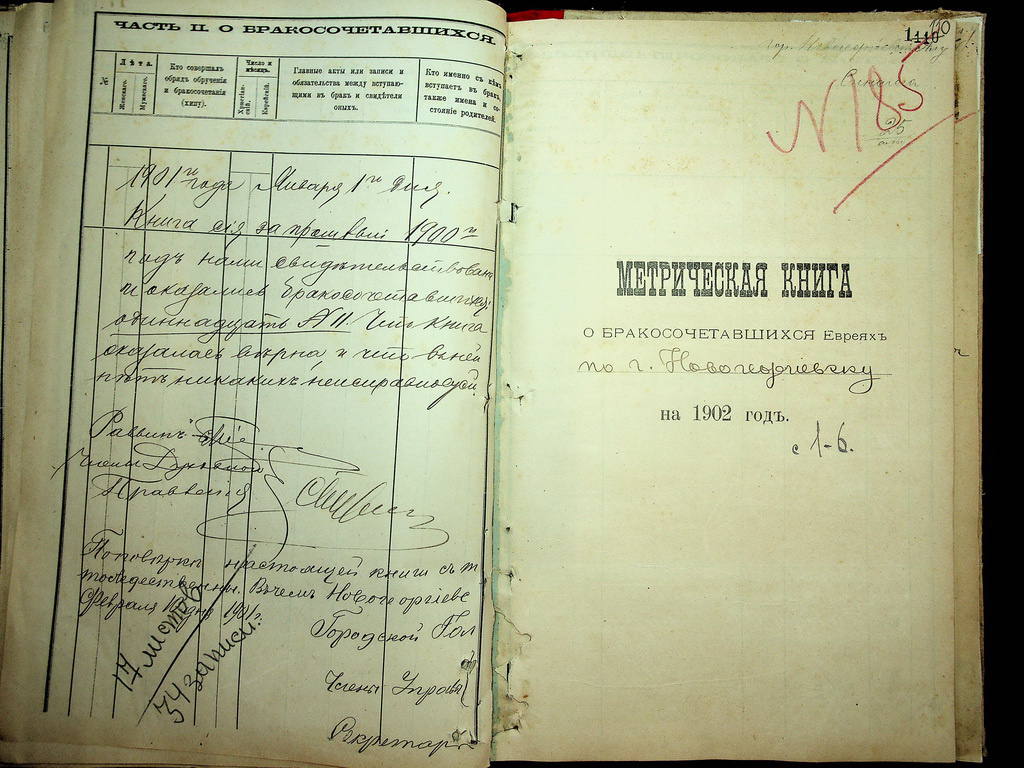 ЧАСТЬ II. О БРАКОСОЧЕТАВШИХСЯ.
№
Лѣта.
Женскаго.
Мужескаго.
Кто совершалъ обрядъ обрученія и бракосочетанія (хипу).
Число и мѣсяцъ.
Христіанскій.
Еврейскій.
Главные акты или записи и обязательства между вступающими въ бракъ и свидѣтели оныхъ.
Кто именно съ кѣмъ вступаетъ въ бракъ, также имена и состояніе родителей.
1901 го года Января 1 го дня.
Книга сія за прошлый 1900 й
годъ нами свидѣтельствована
и оказалось бракосочетавшихся
одиннадцать № 11. Что книга
оказалась вѣрна, и что въ ней
нѣтъ никакихъ неисправностей
Раввинъ
Члены Духовной
Правленія
По повѣркѣ настоящей книги съ
тождественны. Въ чемъ Новогеоргіевс
Февраля дня 1901 г.
Городской Гол
Члены Управы
Секретарь
17 листов
34 записи.
110
N 185
25
МЕТРИЧЕСКАЯ КНИГА
О БРАКОСОЧЕТАВШИХСЯ Евреяхъ
по г. Новогеоргіевску
на 1902 годъ.
с 1-6.